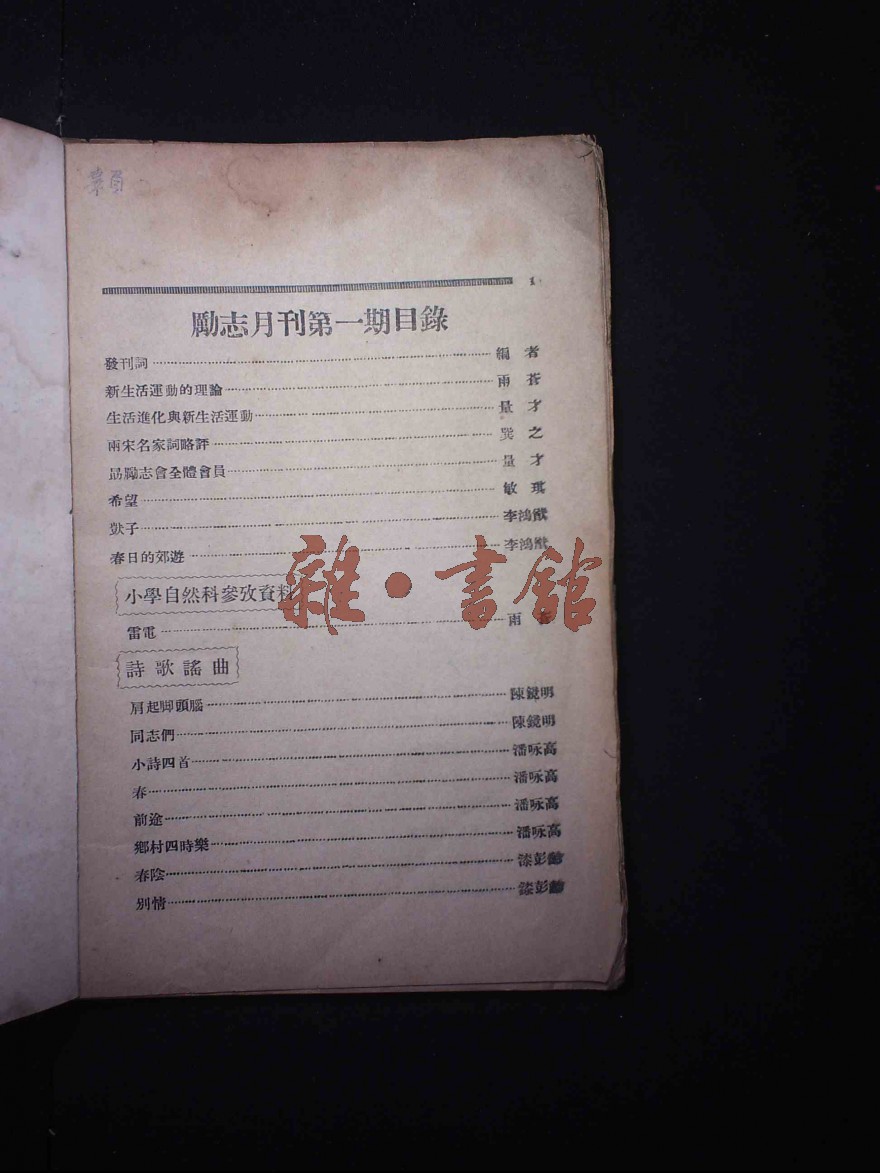 1
勵志月刊第一期目錄
發刊詞 編者
新生活運動的理論 雨苍
生活進化與新生活運動 量才
兩宋名家詞略評 巽之
勗勵志會全體會員 量才
希望 敏琪
獃子 李鴻猷
春日的郊遊 李鴻猷
小學自然科參攷資料
雷電 雨苍
詩歌謠曲
肩起脚頭腦 陳鏡明
同志們 陳鏡明
小詩四首 潘咏高
春 潘咏高
前途 潘咏高
鄉村四時樂 潘咏高
春陰 漆彭齡
別情 漆彭齡
雜·書館